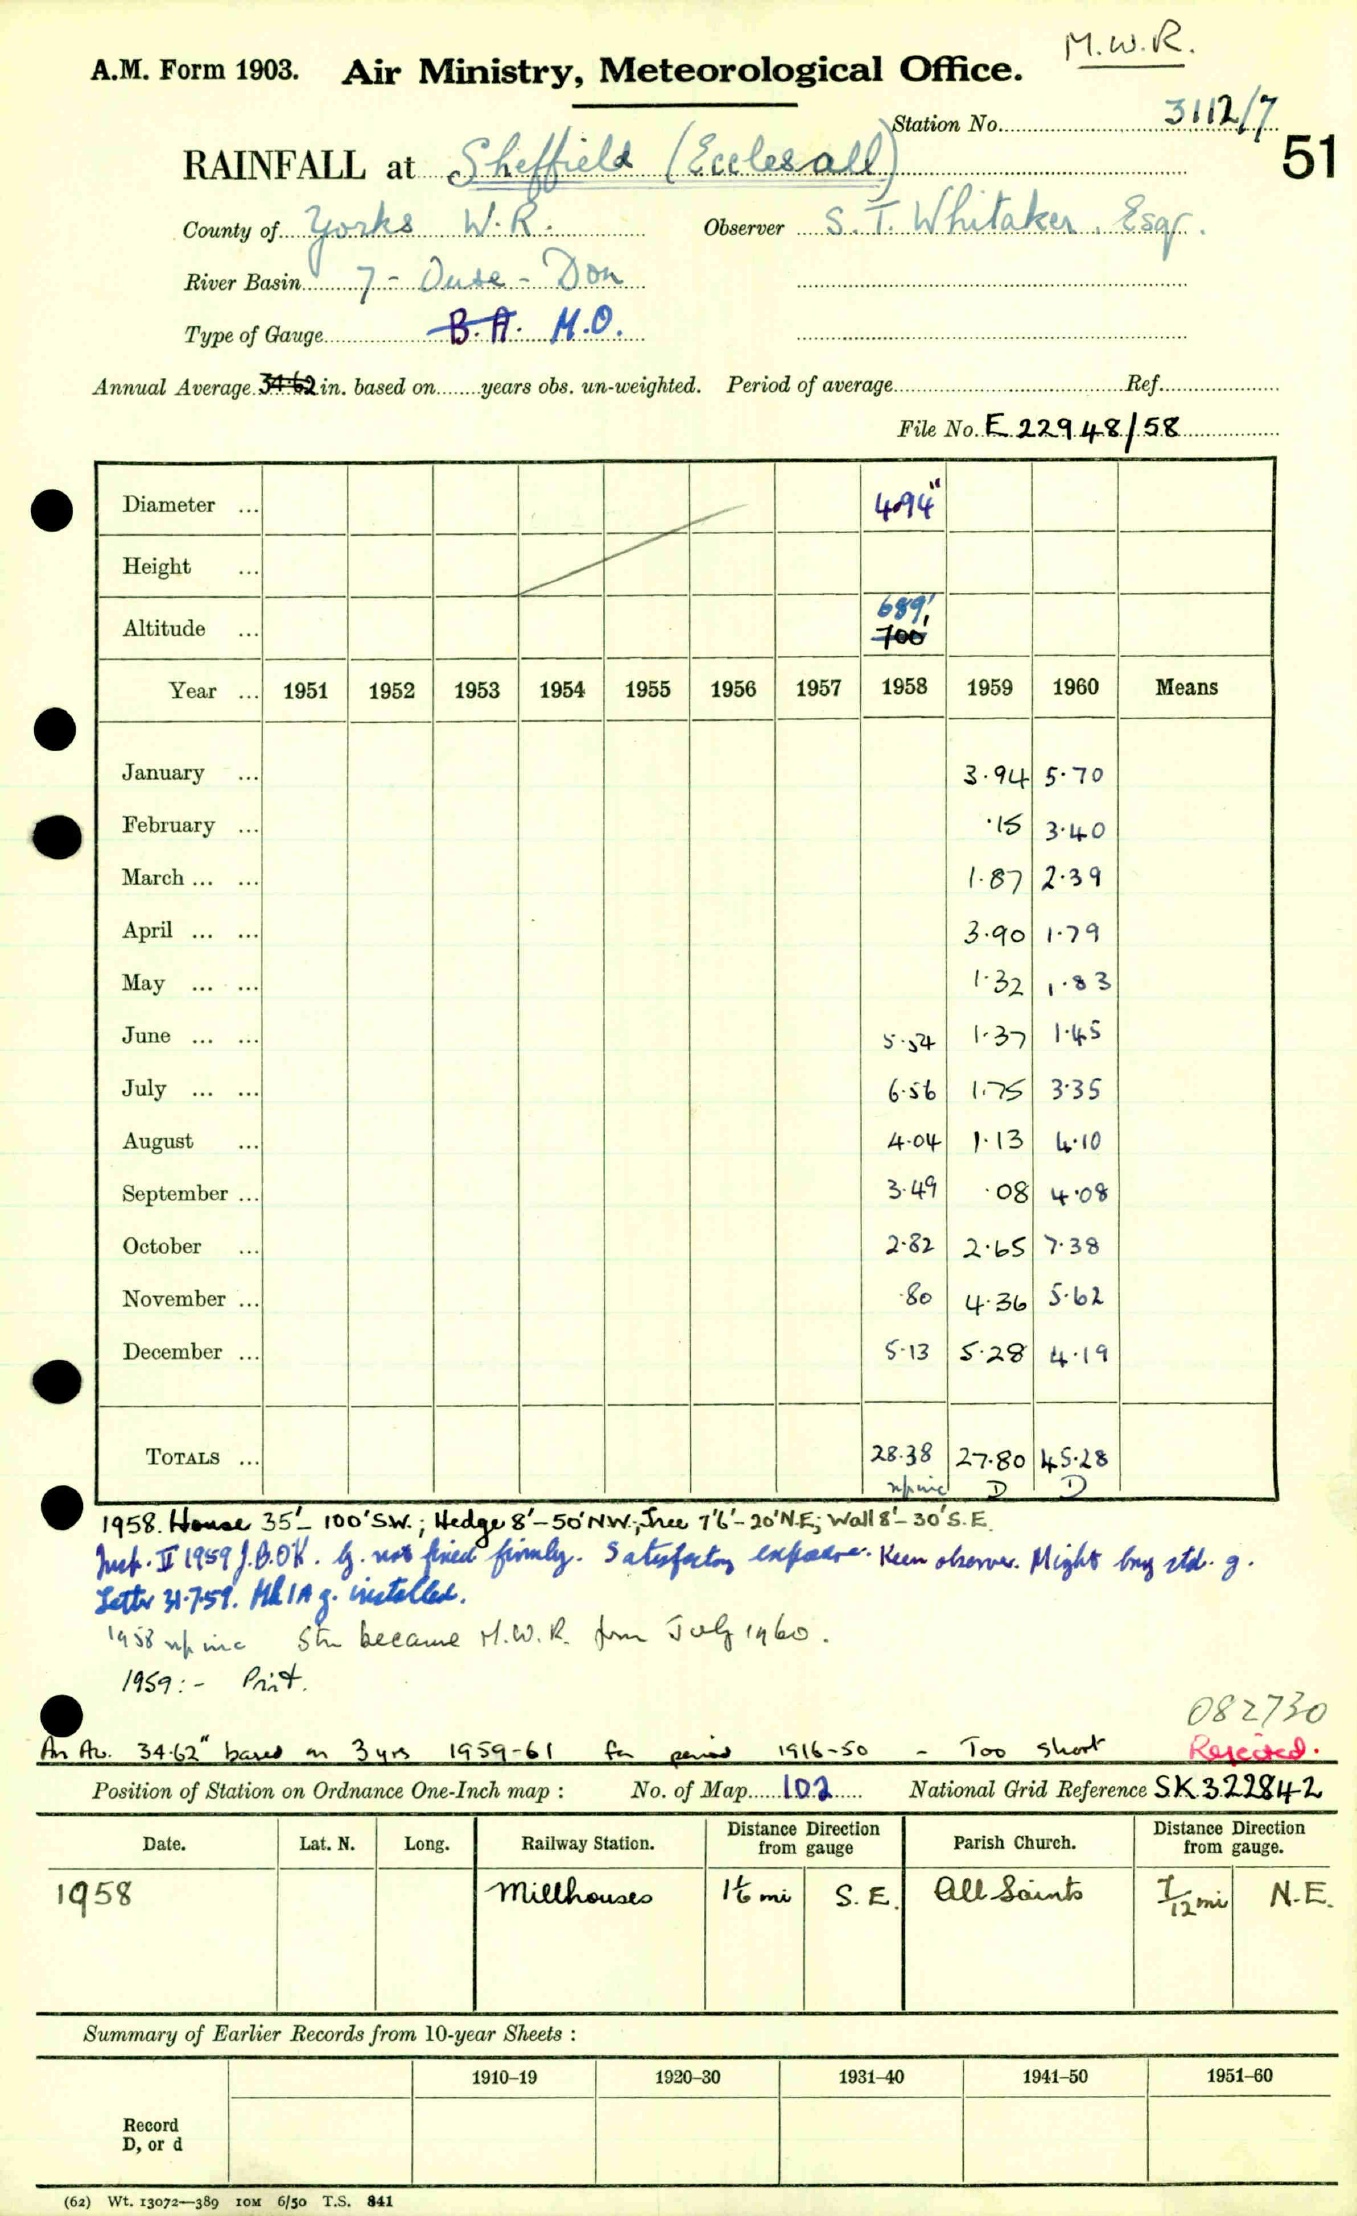 M.W.R.
A.M. Form 1903. Air Ministry, Meteorological Office.
Station No. 3112/7
51
RAINFALL at Sheffield (Ecclesall)
County of Yorks W.R. Observer S. T. Whitaker, Esqr.
River Basin 7 - Ouse - Don
Type of Gauge B.A. M.O.
Annual Average 34.62 in. based on years obs. un-weighted. Period of average Ref.
File No. E 22948/58
Diameter ... 4.94"
Height ...
Altitude ... 689' 700'
Year ... 1951 1952 1953 1954 1955 1956 1957 1958 1959 1960 Means
January ... 3.94 5.70
February ... .15 3.40
March ... ... 1.87 2.39
April ... ... 3.90 1.79
May ... ... 1.32 1.83
June ... ... 5.54 1.37 1.45
July ... ... 6.56 1.75 3.35
August ... 4.04 1.13 4.10
September ... 3.49 .08 4.08
October ... 2.82 2.65 7.38
November ... .80 4.36 5.62
December ... 5.13 5.28 4.19
TOTALS ... 28.38 27.80 45.28
D D
1958. House 35'- 100' SW.; Hedge 8'- 50' NW.; Tree 7'6'- 20' N.E; Wall 8'- 30' S.E.
Insp. II 1959 J.B.OK. G. not fixed firmly. Satisfactory exposure. Keen observer. Might buy std. g.
Letter 31.7.59. Mk 1A g. installed.
1958 Stn became M.W.R. from July 1960.
1959:- Print.
082730
An Av. 34.62" based on 3 yrs 1959-61 for period 1916-50 - Too short Rejected.
Position of Station on Ordnance One-Inch map : No. of Map 102 National Grid Reference SK 322842
Date. Lat. N. Long. Railway Station. Distance from Direction gauge Parish Church. Distance from Direction gauge.
1958 Millhouses 1 1/6 mi S.E. All Saints 7/12 mi N.E.
Summary of Earlier Records from 10-year Sheets :
1910–19 1920–30 1931–40 1941–50 1951–60
Record
D, or d
(62) Wt. 13072—389 10M 6/50 T.S. 841